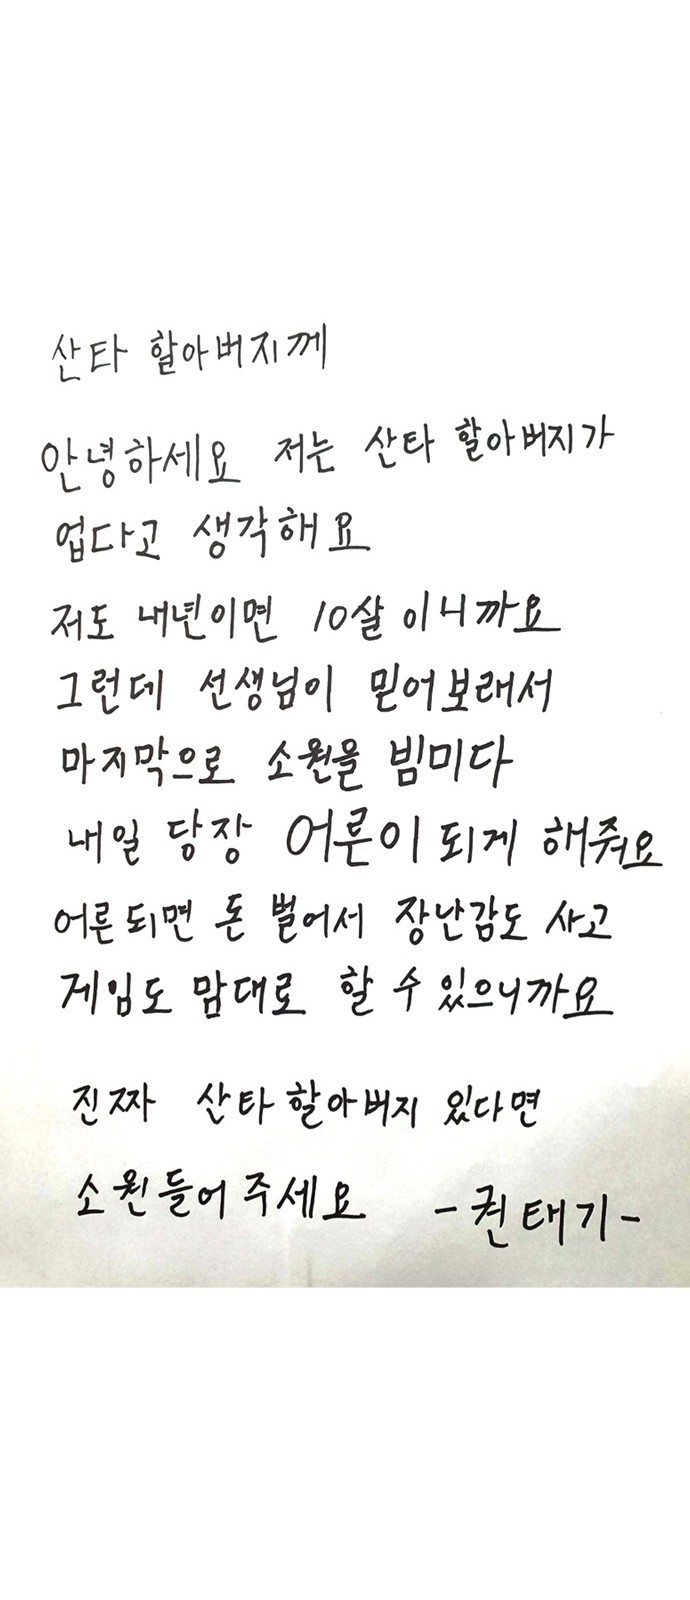 산타 할아버지께
안녕하세요 저는 산타 할아버지가
업다고 생각해요
저도 내년이면 10살이니까요
그런데 선생님이 믿어보래서
마지막으로 소원을 빔미다
내일 당장 어른이 되게 해줘요
어른되면 돈 벌어서 장난감도 사고
게임도 맘대로 할 수 있으니까요
진짜 산타 할아버지 있다면
소원들어주세요 -권태기-